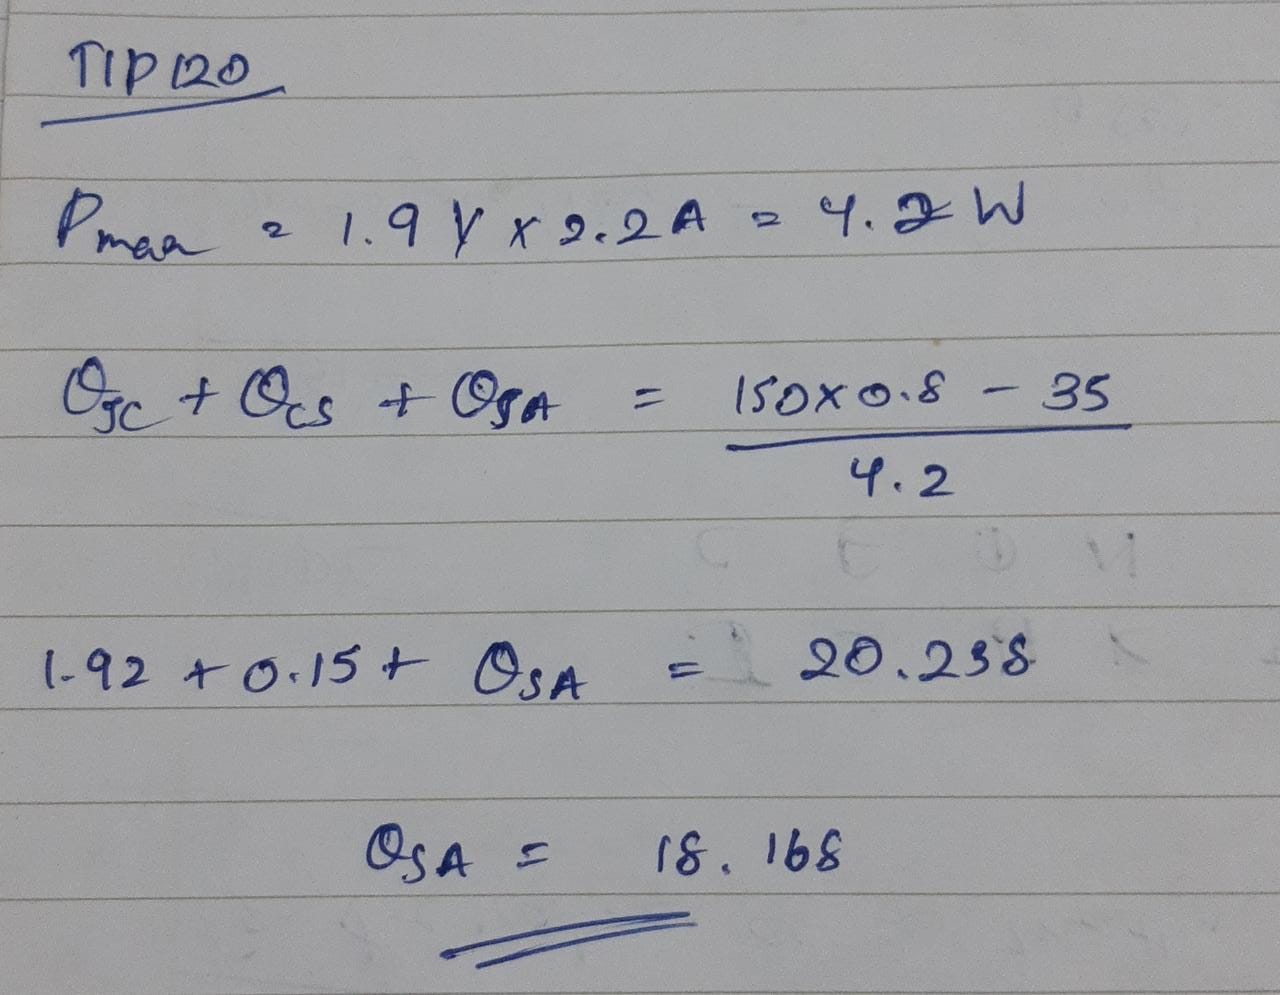 TIP120
Pmax = 1.9 V x 2.2 A = 4.2 W
θJC + θCS + θSA = 150 x 0.8 - 35
4.2
1.92 + 0.15 + θSA = 20.238
θSA = 18.168